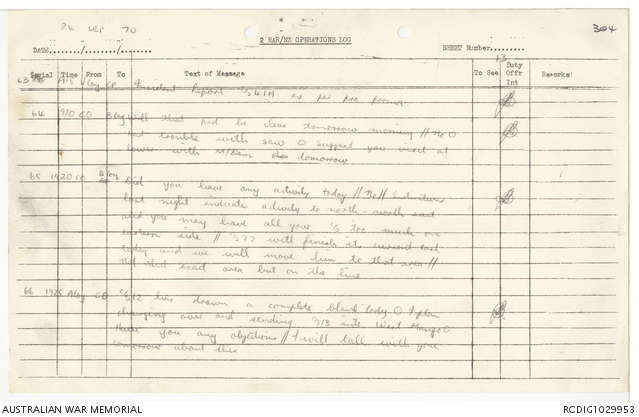 304
70
2 RAR/NZ OPERATIONS LOG
DATE......./......./.......
SHEET Number.........
13
Serial Time From To Text of Message To See Duty Offr Int Remarks
63 A Coy CO Incident Report as per pro forma
64 1910 CO B Coy Will that pad be clear tomorrow morning // No O
had trouble with saw O suggest you meet at
tower with tomorrow
65 1920 CO Did you have any activity today // No // Indicators
last night indicate activity to north - north east
and you may have all your c/s too much on
eastern side // will finish its current task
today and we will move him to that area //
Not that exact area but on the line
66 A Coy CO c/s 12 has drawn a complete blank today O I plan
changing over and sending into West O
Have you any objections // I will talk with you
tomorrow about this
AUSTRALIAN WAR MEMORIAL
RCDIG1029953